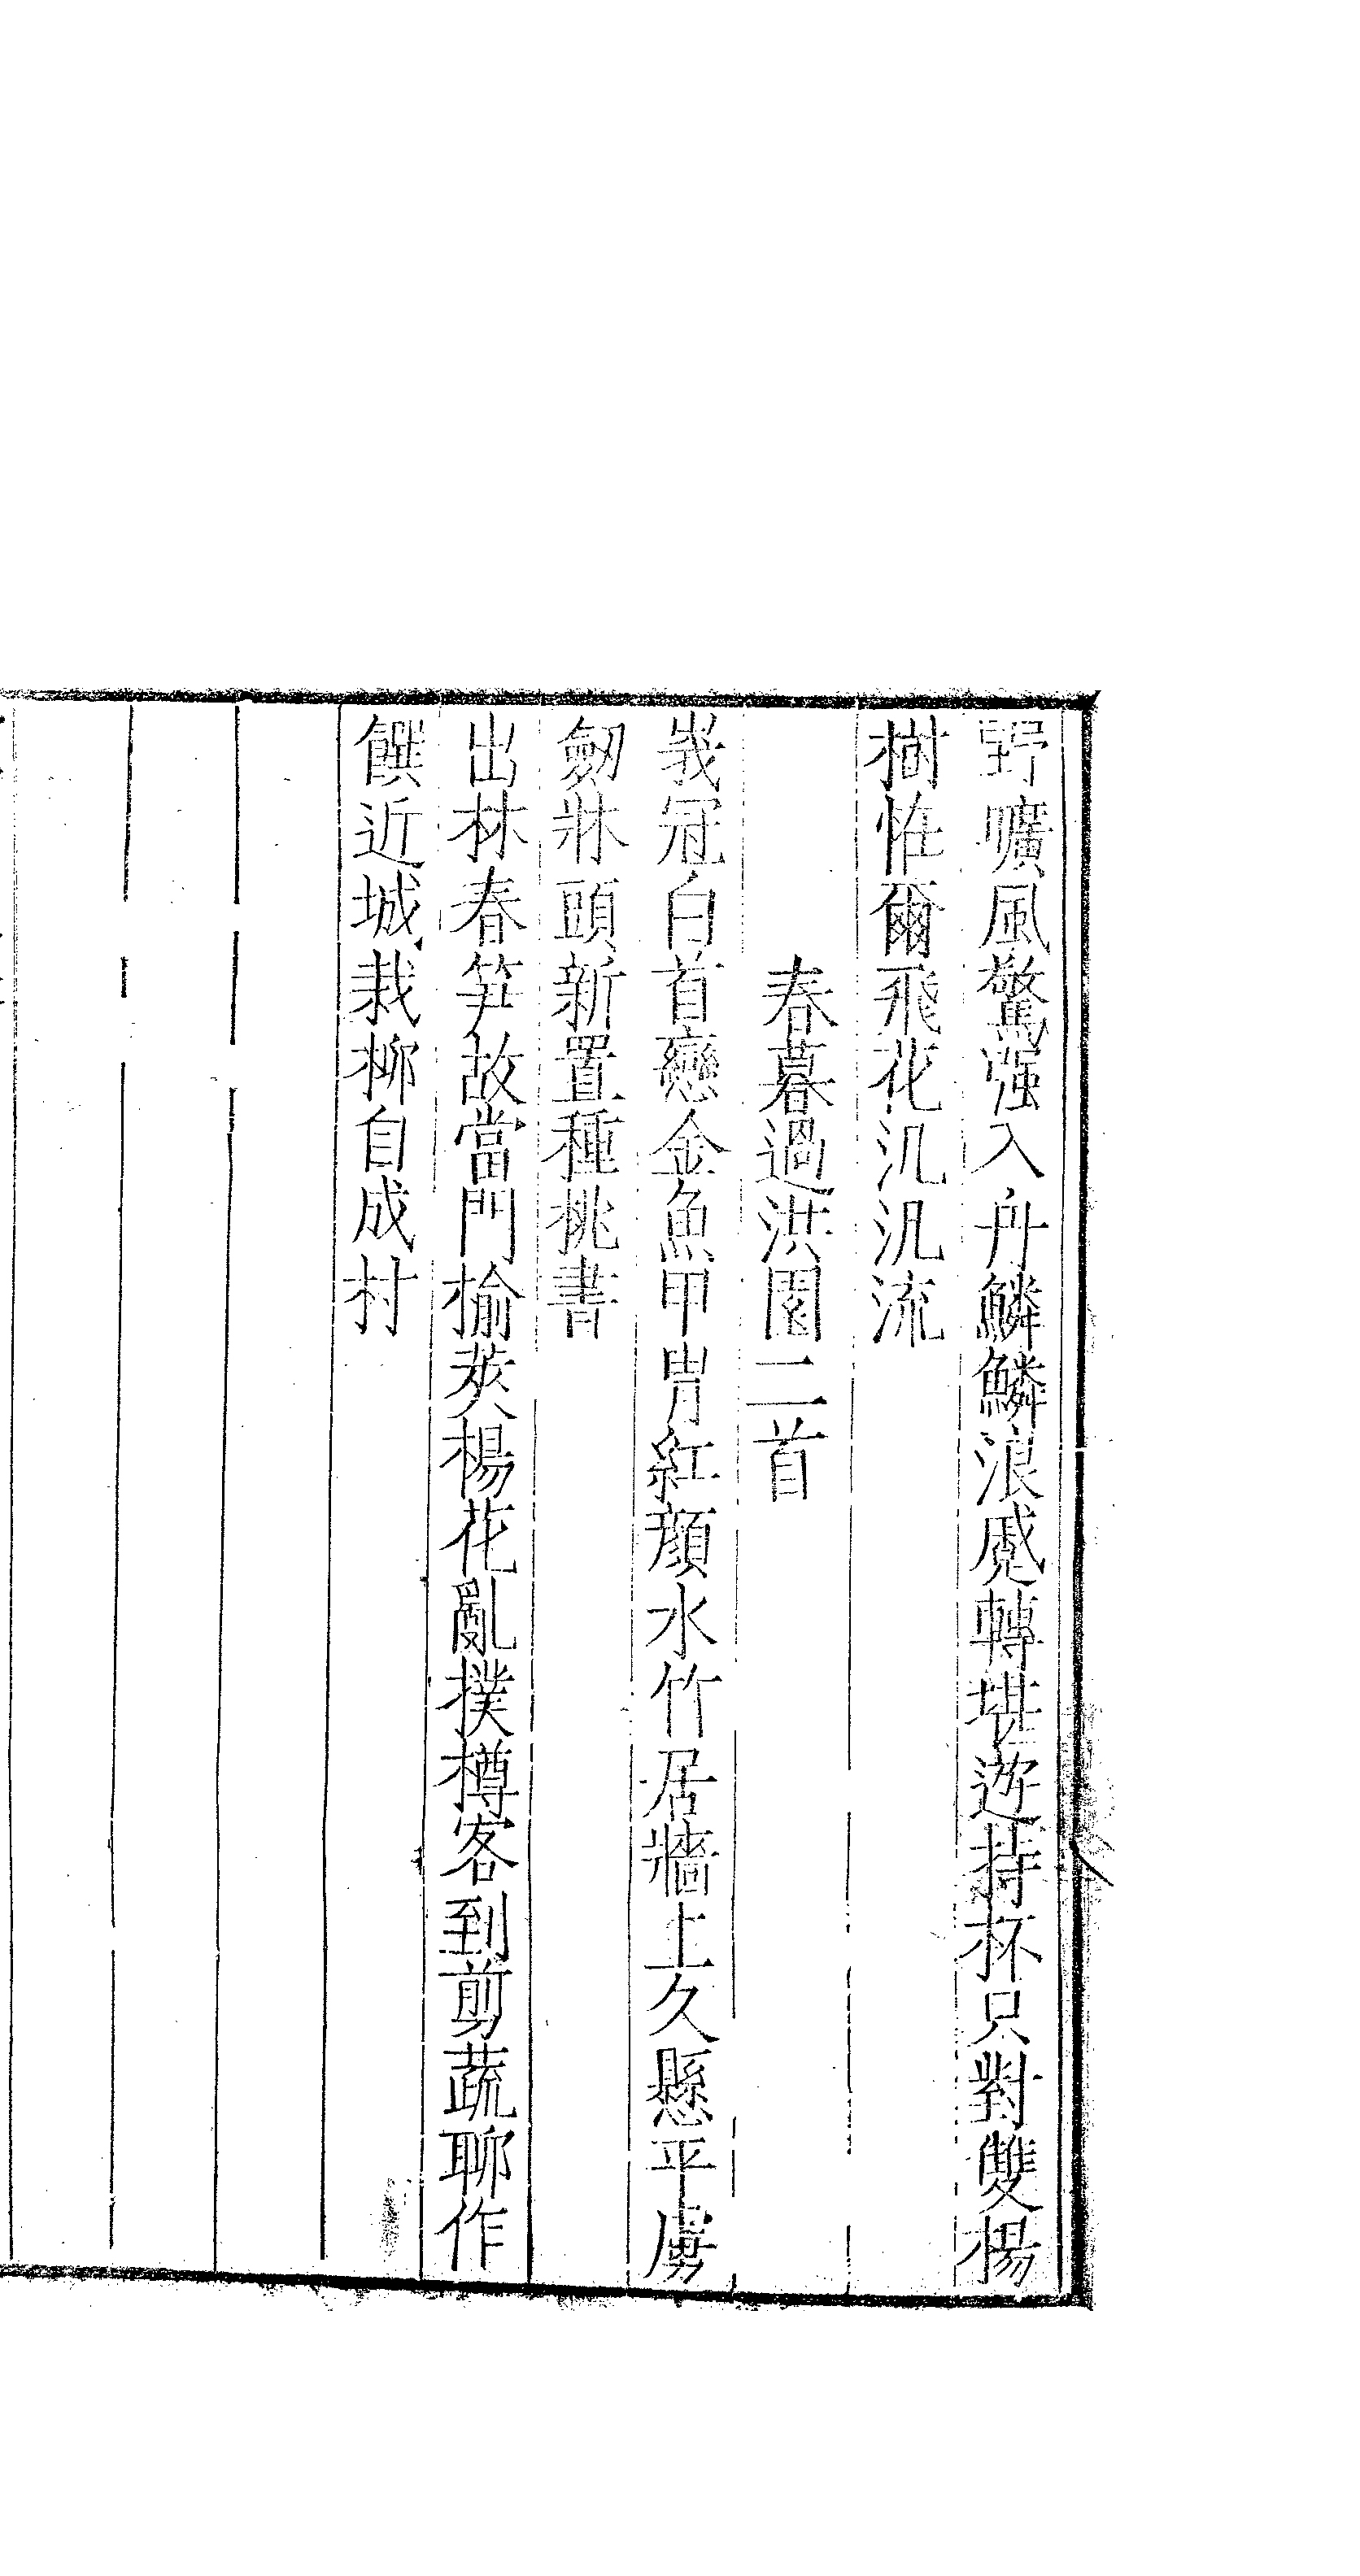 野曠風驚强入舟鱗鱗浪蹙轉堪遊持杯只對雙楊
樹怪爾飛花汎汎流
春暮過洪園二首
峩冠白首戀金魚甲冑紅顏水竹居牆上久懸平虜
劒牀頭新置種桃書
出林春笋故當門榆莢楊花亂撲樽客到剪蔬聊作
饌近城栽柳自成村